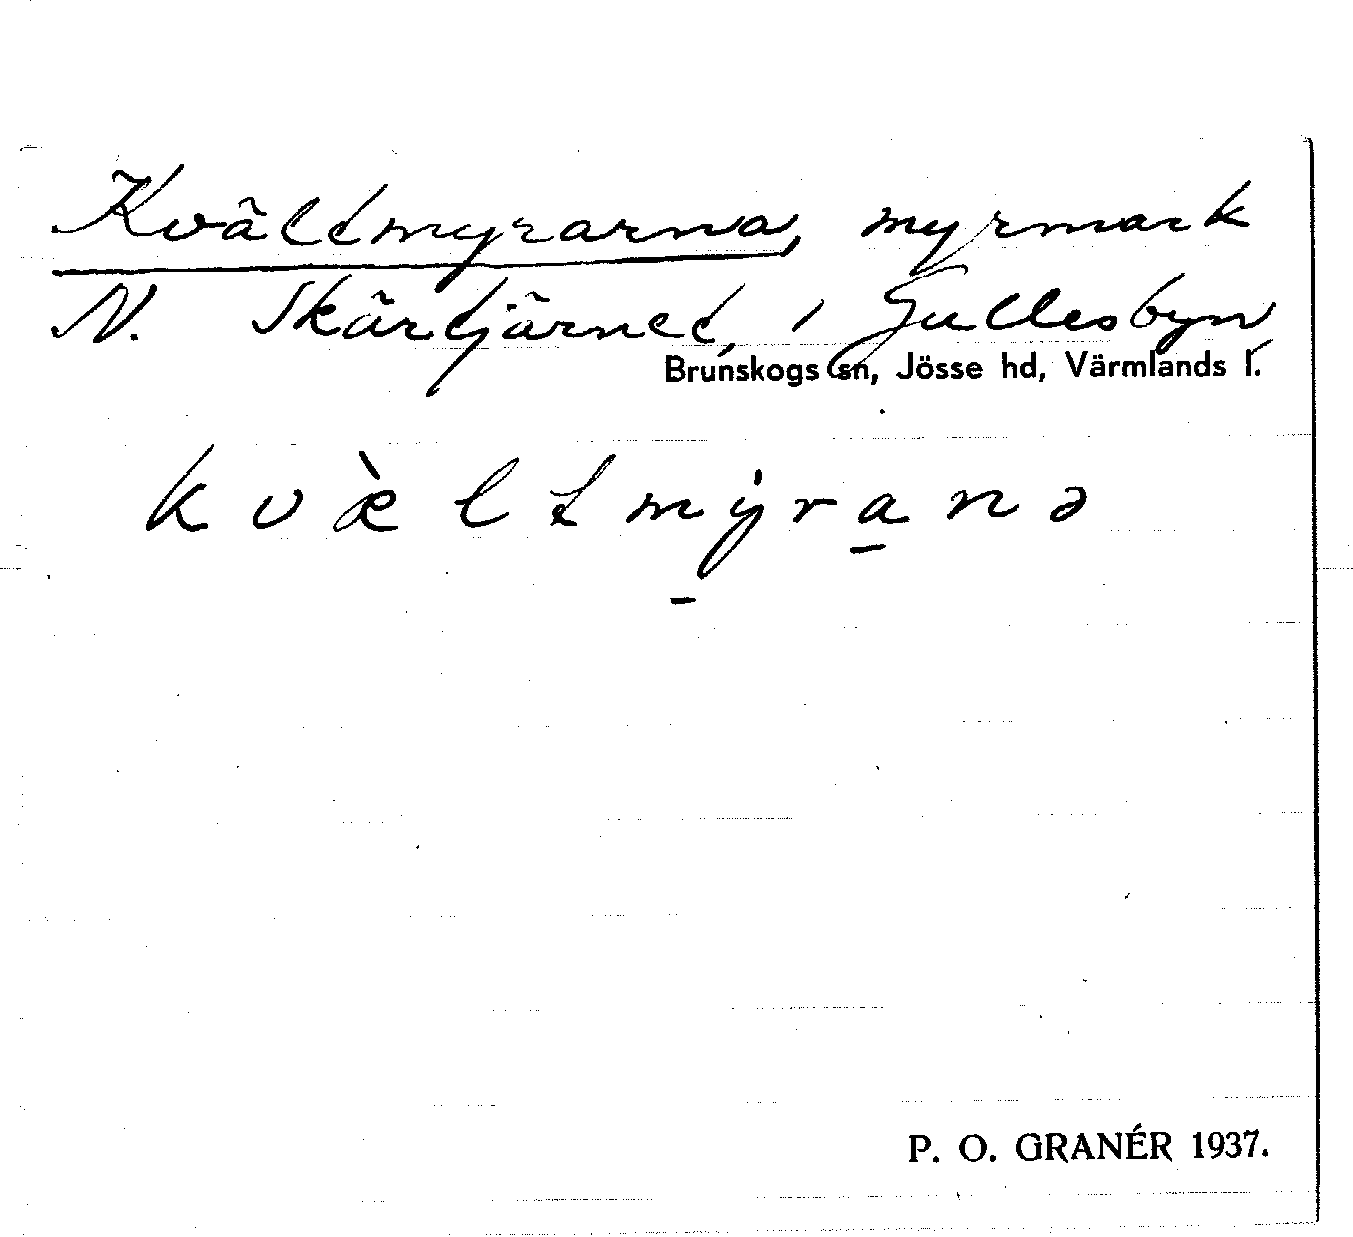 Kvältmyrarna, myrmark
N. Skärtjärnet, i Gullesbyn
Brunskogs sn, Jösse hd, Värmlands l.
kvæ̀ltmy̍ranə
P. O. GRANÉR 1937.